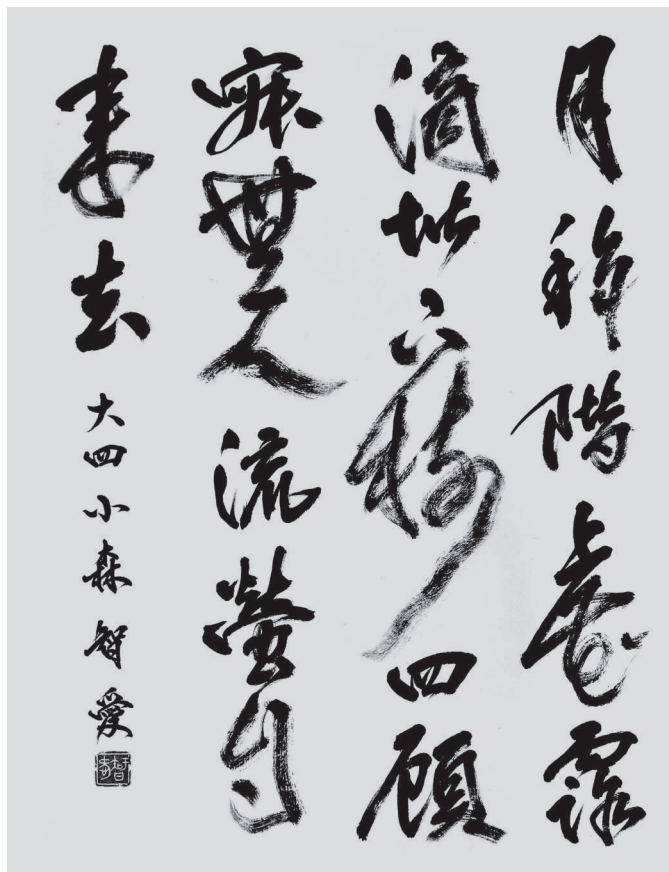 月移階上露
滴下樹四顧
寂無人流螢自
來去
大四小森智愛